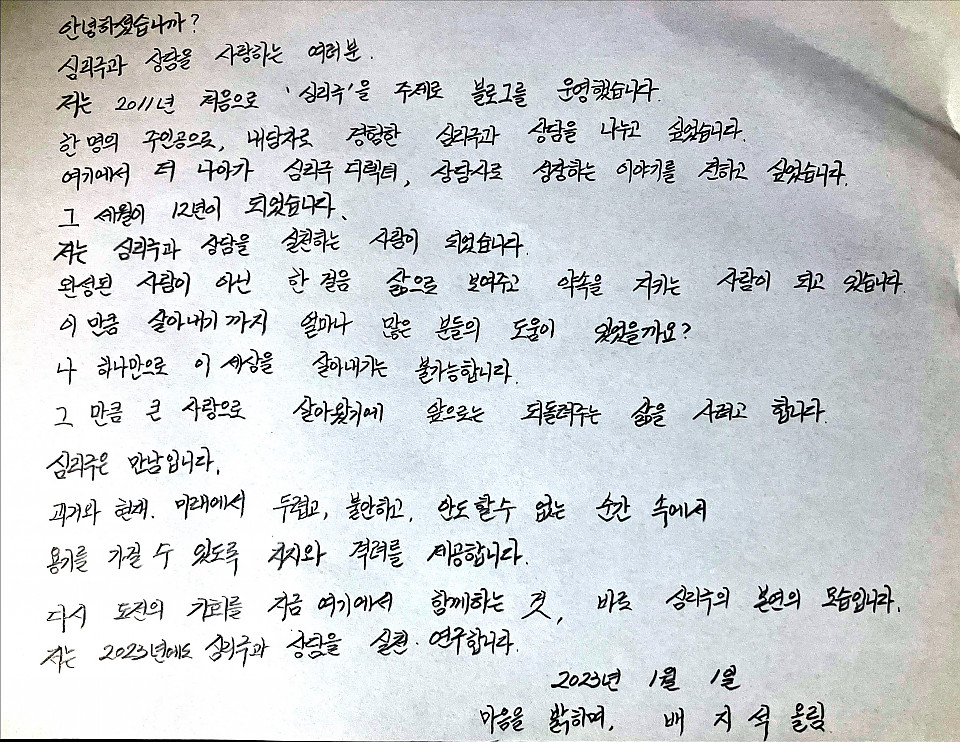 안녕하셨습니까?
심리극과 상담을 사랑하는 여러분.
저는 2011년 처음으로 '심리극'을 주제로 블로그를 운영했습니다.
한 명의 주인공으로, 내담자로 경험한 심리극과 상담을 나누고 싶었습니다.
여기에서 더 나아가 심리극 디렉터, 상담사로 성장하는 이야기를 전하고 싶었습니다.
그 세월이 12년이 되었습니다.
저는 심리극과 상담을 실천하는 사람이 되었습니다.
완성된 사람이 아닌 한 걸음 삶으로 보여주고 약속을 지키는 사람이 되고 있습니다.
이 만큼 살아내기까지 얼마나 많은 분들의 도움이 있었을까요?
나 하나만으로 이 세상을 살아내기는 불가능합니다.
그 만큼 큰 사랑으로 살아왔기에 앞으로는 되돌려주는 삶을 사려고 합니다.
심리극은 만남입니다.
과거와 현재. 미래에서 두렵고, 불안하고, 안도할 수 없는 순간 속에서
용기를 가질 수 있도록 지지와 격려를 제공합니다.
다시 도전의 기회를 지금 여기에서 함께하는 것, 바로 심리극의 본연의 모습입니다.
저는 2023년에도 심리극과 상담을 실천·연구합니다.
2023년 1월 1일
마음을 밝히며, 배 지 석 올림